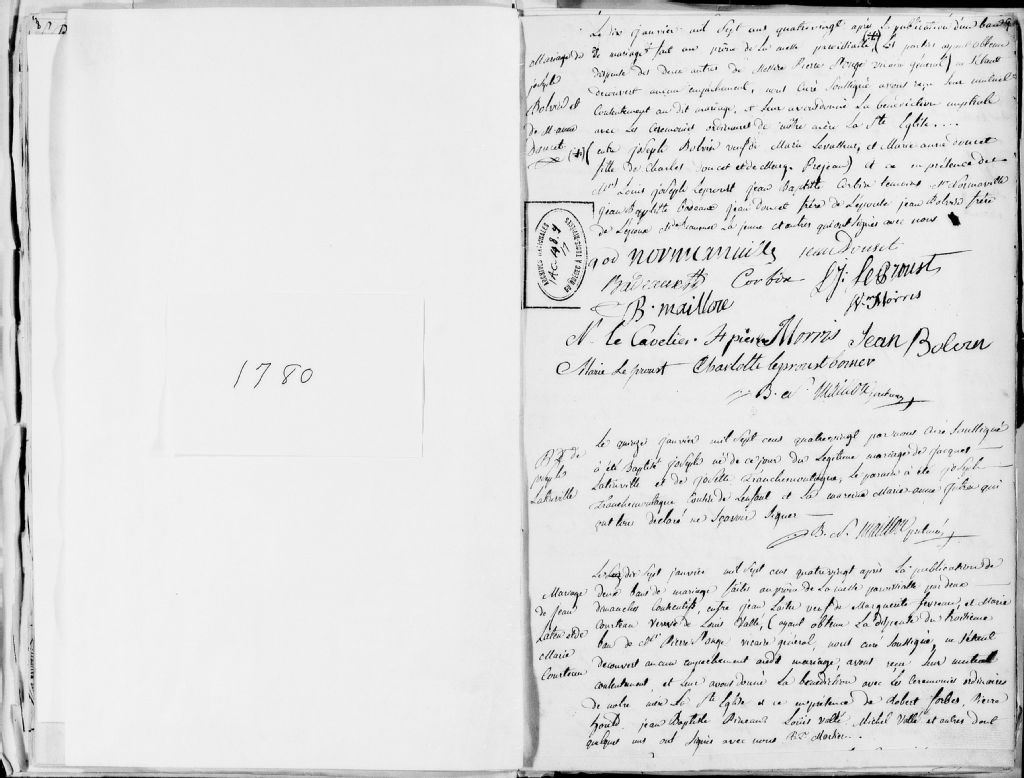 1780
Le dix janvier mil sept cens quatrevingt après la publication d'un ban
de mariage fait au prône de la messe paroissiale (les parties ayant obtenu
dispense des deux autres de Messire Pierre Pougé vicaire général) ne s'étant
decouvert aucun empechement, nous curé soussigné avons reçu leur mutuel
consentement au dit mariage, et leur avons donné la benediction nuptiale
avec les ceremonies ordinaires de notre mère la Ste Eglise...
entre joseph Bolvin veuf de Marie Levasseur et Marie anne doucet
fille de Charles doucet et de Marg. Prejean) et ce en présence de
Mrs Louis joseph Leproust jean Baptiste Corbin temoins Mr Normanville
jean Baptiste Badeaux jean doucet frère de l'epouse jean Bolvin frère
de l'epoux la jeune et autres qui ont signés avec nous
Mariage de
joseph
Bolvin et
de M. anne
Doucet
ARCHIVES NATIONALES
god normanville jean Doucet
Badeaux Corbin LJ. leProust
B. maillou Wm Morris
M. le Cavelier. pierre Morris Jean Bolvin
Marie Le proust Charlotte leproust
B. N. Maillou ptre curé
Bt. de
joseph
Latreville
Le quinze janvier mil sept cens quatrevingt par nous curé soussigné
à été Baptisé joseph né de ce jour du legitime mariage de jacques
Latreville et de josette franchemontagne, le parain à été joseph
franchemontagne de l'enfant et la maraine Marie anne qui
ont declaré ne sçavoir signer
B. N. Maillou ptre curé
Mariage
de jean
et de
Marie
Courteau
Le dix sept janvier mil sept cens quatrevingt après la publication de
deux bans de mariage faits au prône de la messe paroissiale par deux
dimanches consecutifs, entre jean veuf de Marguerite fevreau, et Marie
Courteau veuve de Louis Vallé, (ayant obtenu la dispense du troisieme
ban de Mr Pierre Pouge vicaire général, nous curé soussigné, ne s'étant
decouvert aucun empechement audit mariage, avons reçu leur mutuel
consentement, et leur avons donné la benediction avec les ceremonies ordinaires
de notre mère la Ste Eglise et ce en présence de Robert forbes, Pierre
jean Baptiste Louis vallé, Michel Vallé et autres dont
quelques uns ont signés avec nous